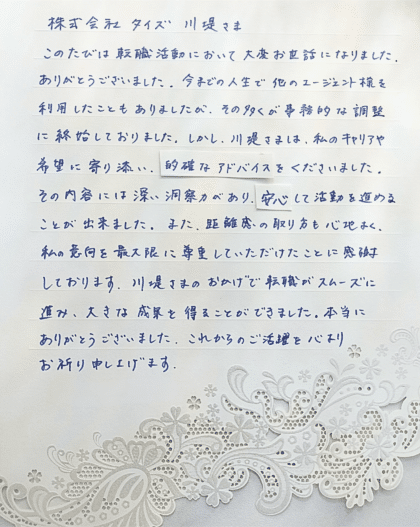 株式会社 タイズ 川堤さま
このたびは転職活動において大変お世話になりました。
ありがとうございました。今までの人生で他のエージェント様を
利用したこともありましたが、その多くが事務的な調整
に終始しておりました。しかし、川堤さまは、私のキャリアや
希望に寄り添い、的確なアドバイスをくださいました。
その内容には深い洞察力があり、安心して活動を進める
ことが出来ました。また、距離感の取り方も心地よく、
私の意向を最大限に尊重していただけたことに感謝
しております。川堤さまのおかげで転職がスムーズに
進み、大きな成果を得ることができました。本当に
ありがとうございました。これからのご活躍を心より
お祈り申し上げます。